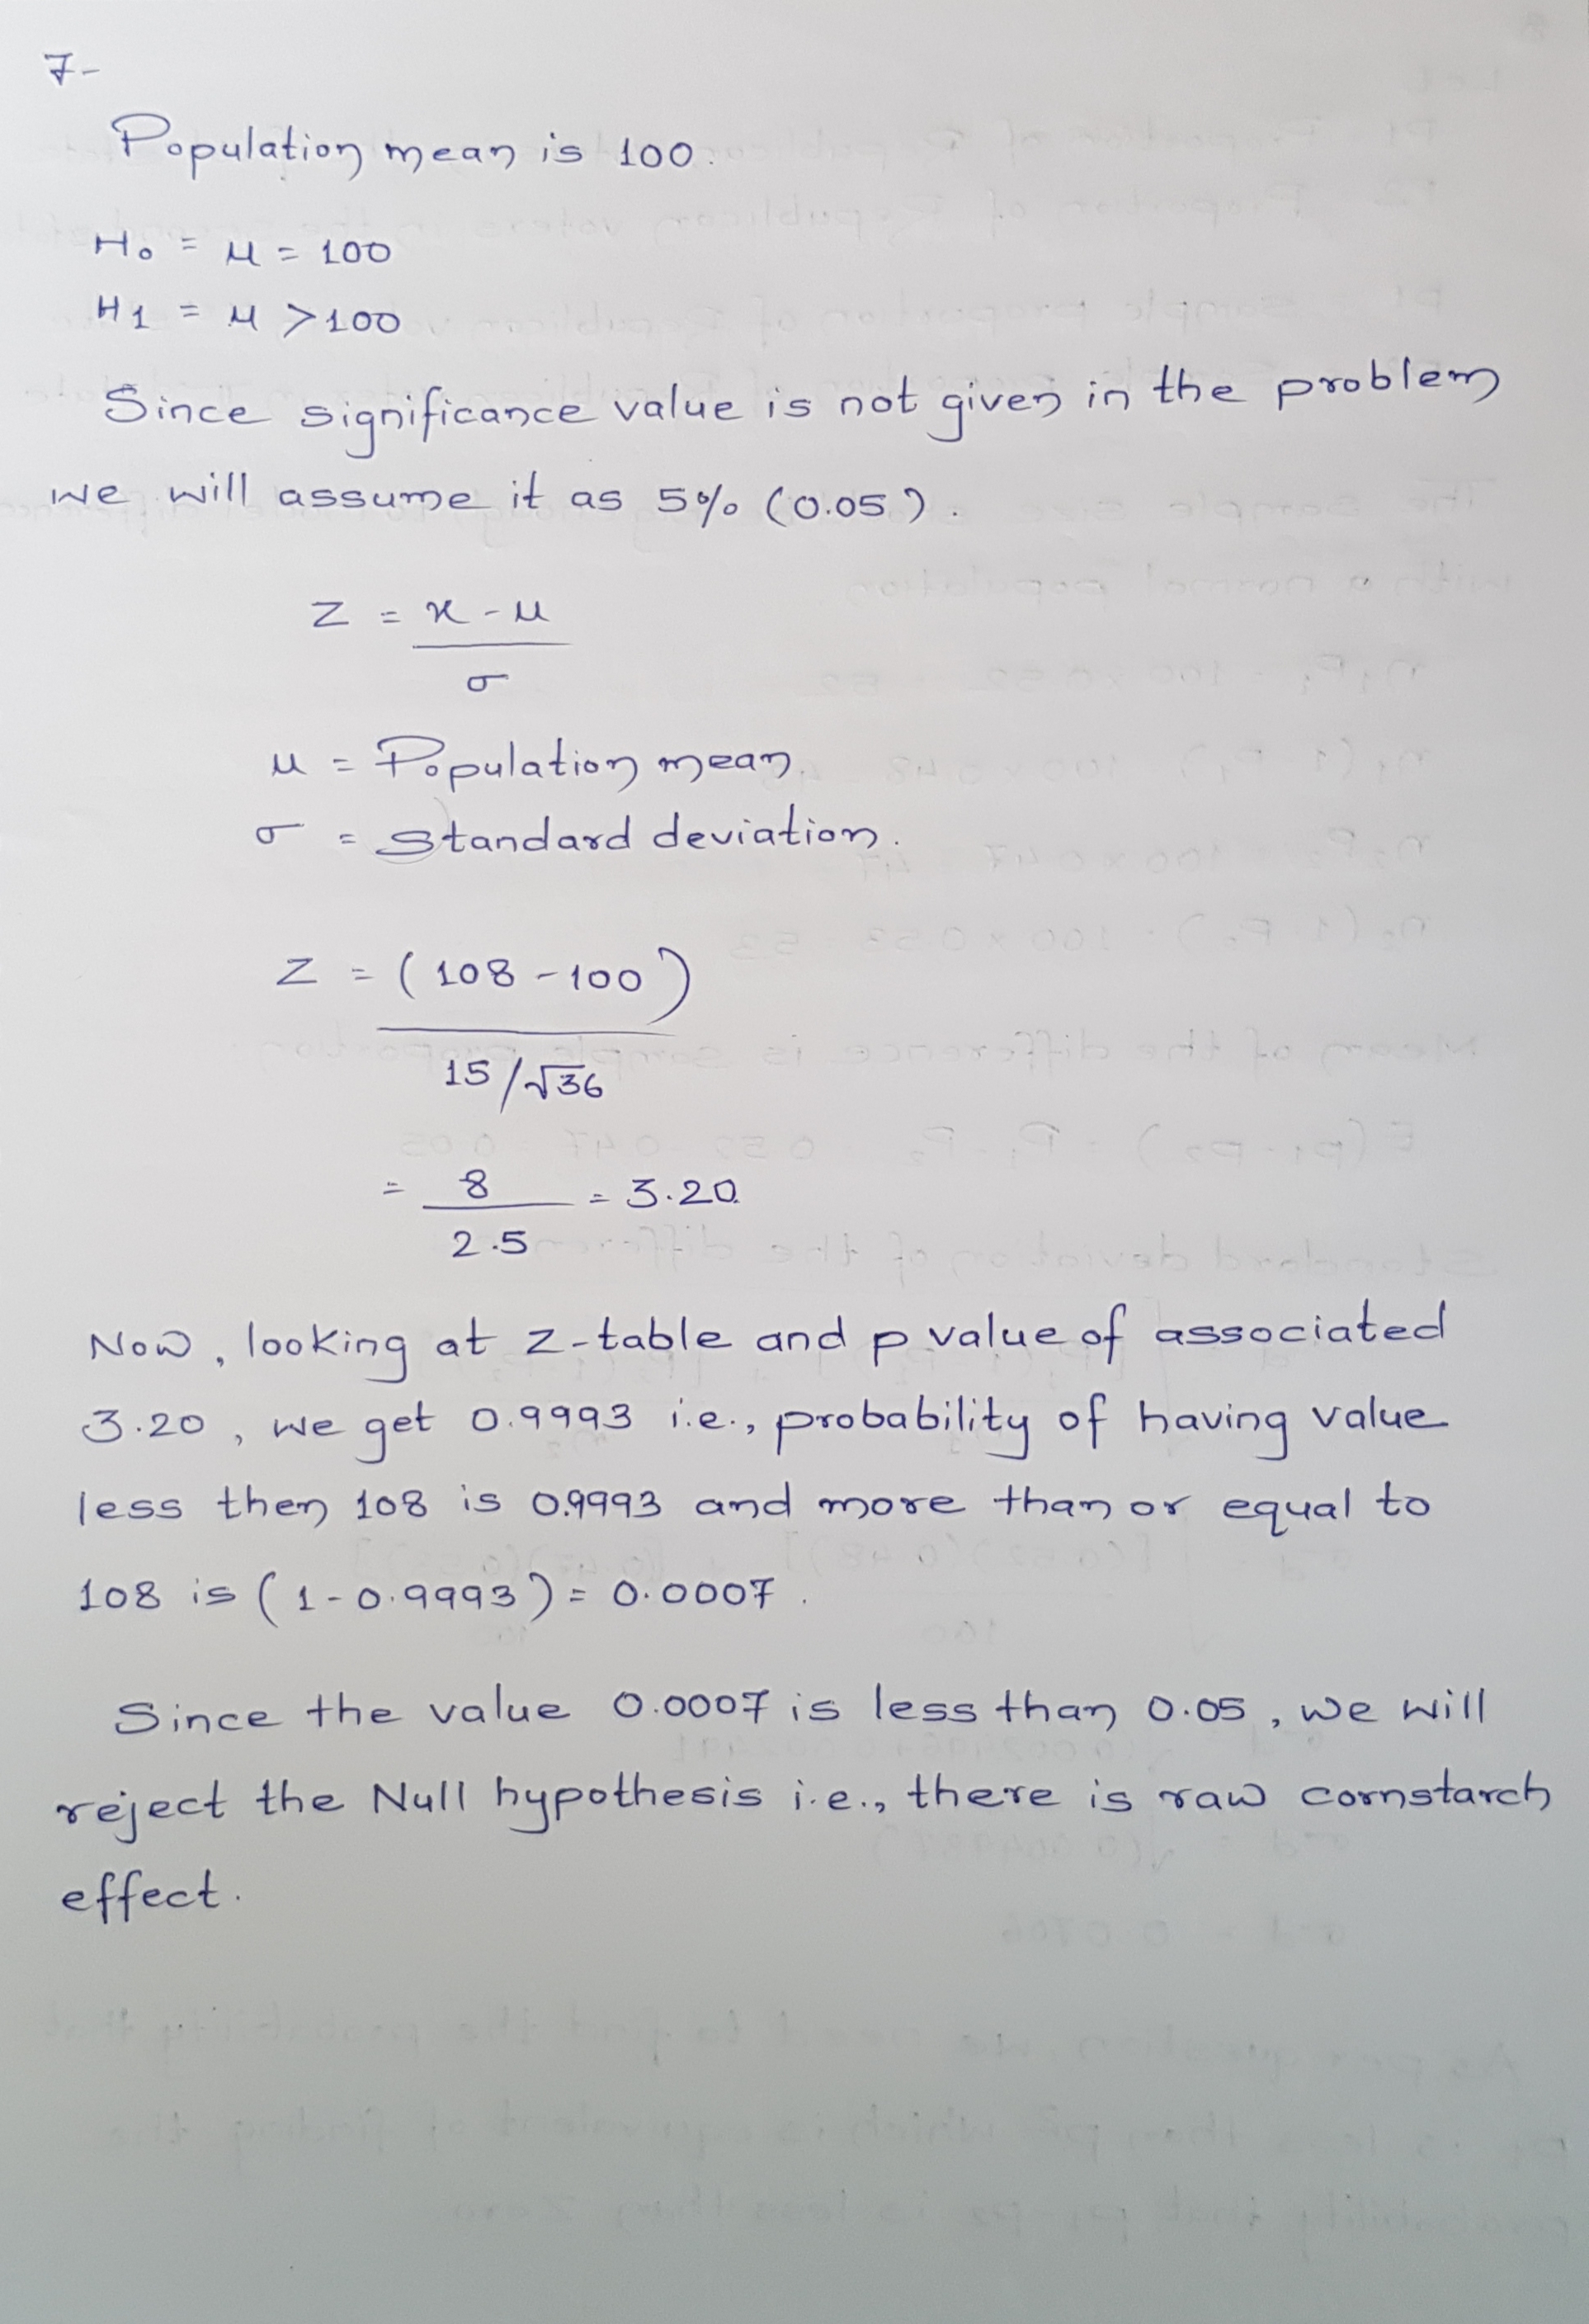 7-
Population mean is 100.
H0 = μ = 100
H1 = μ > 100
Since significance value is not given in the problem
we will assume it as 5% (0.05).
Z = x - μ
σ
μ = Population mean
σ = Standard deviation.
Z = (108 - 100)
15/√36
= 8 = 3.20
2.5
Now, looking at z-table and p value of associated
3.20, we get 0.9993 i.e., probability of having value
less then 108 is 0.9993 and more than or equal to
108 is (1-0.9993) = 0.0007.
Since the value 0.0007 is less than 0.05, we will
reject the Null hypothesis i.e., there is raw cornstarch
effect.